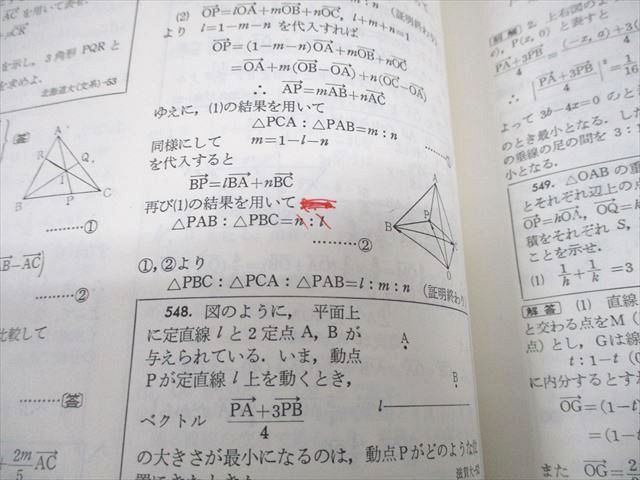 AC を用いて表
=CR
を示し，3角形 PQR と
を求めよ．
北海道大(文系)-53
答
A
R
Q
I
B
P
C
………①
AB－AC)
………②
比較して
………答
+2m/5 AC
(2) OP＝lOA＋mOB＋nOC，l＋m＋n＝1
より l＝1－m－n を代入すれば
OP＝(1－m－n)OA＋mOB＋nOC
＝OA＋m(OB－OA)＋n(OC－OA)
∴ AP＝mAB＋nAC
ゆえに，(1)の結果を用いて
△PCA：△PAB＝m：n ………①
同様にして m＝1－l－n
を代入すると
BP＝lBA＋nBC
再び(1)の結果を用いて
△PAB：△PBC＝n：l
………②
①，②より
△PBC：△PCA：△PAB＝l：m：n
(証明終わり)
A
P
B
O
548. 図のように， 平面上
に定直線 l と2定点 A，B が
与えられている．いま，動点
P が定直線 l 上を動くとき，
ベクトル PA＋3PB/4
の大きさが最小になるのは，動点Pがどのような位
滋賀大
A
B
l
解 2. 上右図のよ
の，P(z, 0) と表すと
PA＋3PB/4 ＝ (－z, a)＋3(
∴ |PA＋3PB/4|²＝1/16
よって 3b－4z＝0 のと
のとき最小となる．した
の垂線の足の間を 3：
小となる．
549. △OAB の重
とそれぞれ辺上の
OP＝hOA，OQ＝k
積をそれぞれ S，
ことを示せ．
(1) 1/h＋1/k＝3
解答 (1) 直線
と交わる点をM (
点) とし，G は線
t：1－t (0
に内分するとす
OG＝(1－t
＝(1－t
また OG＝2/